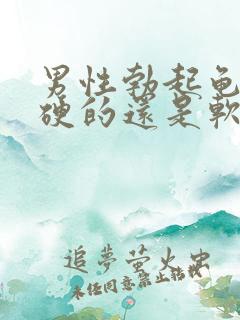 男性勃起龟
硬的还是软
追梦萤火虫
未经同意禁止转载